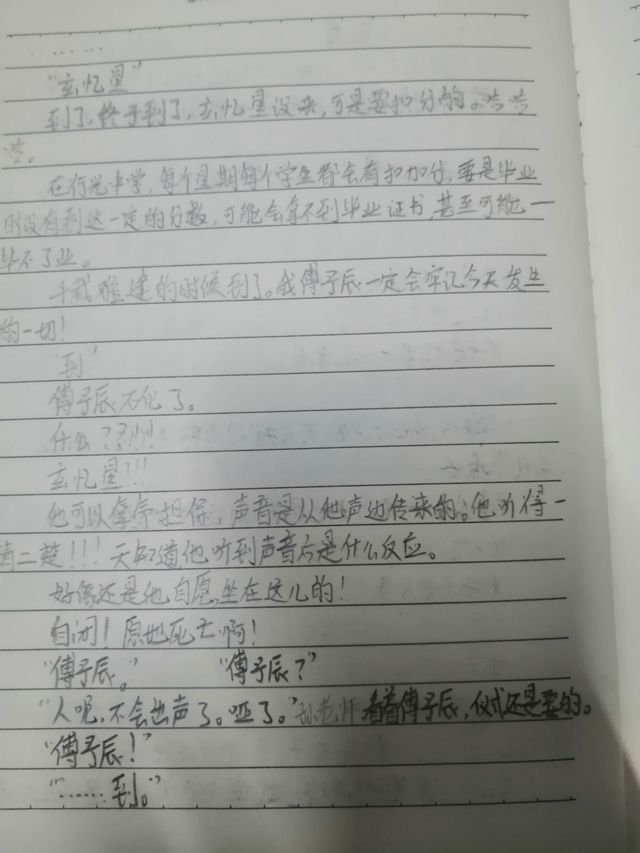 ……
“玄忆星”
到了,终于到了,玄忆星没来,可是要扣分的。哈哈
哈。
在衍光中学,每个星期每个学生都会有扣加分,要是毕业
时没有到达一定的分数,可能会拿不到毕业证书,甚至可能一
毕不了业。
千载难逢的时候到了。我傅予辰一定会牢记今天发生
的一切!
“到”
傅予辰石化了。
什么??!!!
玄忆星!!!
他可以拿命担保,声音是从他声边传来的。他听得一
清二楚!!!天知道他听到声音后是什么反应。
好像还是他自愿坐在这儿的!
自闭!原地死亡啊!
“傅予辰。” “傅予辰?”
“人呢,不会出声了。哑了。”老师看着傅予辰,仪式还是要的。
“傅予辰!”
“……到。”